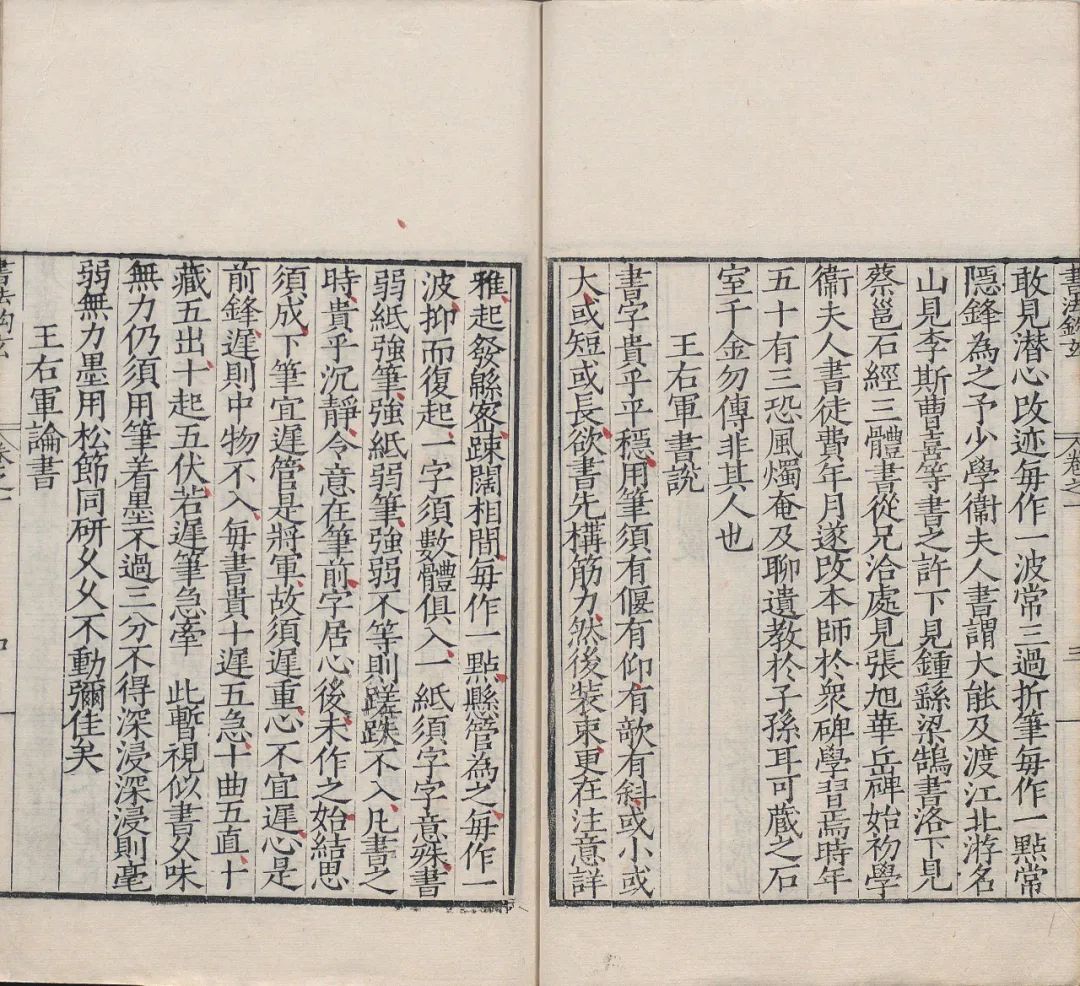 書法鉤玄
卷之一
三
敢見潜心改迹每作一波常三過折筆每作一點常
隱鋒為之予少學衞夫人書謂大能及渡江北游名
山見李斯曹喜等書之許下見鍾繇梁鵠書洛下見
蔡邕石經三體書從兄洽處見張旭華岳碑始初學
衞夫人書徒費年月遂改本師於衆碑學習焉時年
五十有三恐風燭奄及聊遺教於子孫耳可藏之石
室千金勿傳非其人也
王右軍書說
書字貴乎平穩用筆須有偃有仰有欹有斜或小或
大或短或長欲書先構筋力然後裝束更在注意詳
雅起發緜密踈闊相間每作一點縣管為之每作一
波抑而復起一字須數體俱入一紙須字字意殊書
弱紙強筆強紙弱筆強弱不等則蹉跌不入凡書之
時貴乎沉靜令意在筆前字居心後未作之始結思
須成下筆宜遲管是將軍故須遲重心不宜遲心是
前鋒遲則中物不入每書貴十遲五急十曲五直十
藏五出十起五伏若遲筆急牽 此暫視似書久味
無力仍須用筆着墨不過三分不得深浸深浸則毫
弱無力墨用松節同研久久不動彌佳矣
王右軍論書
書法鉤玄